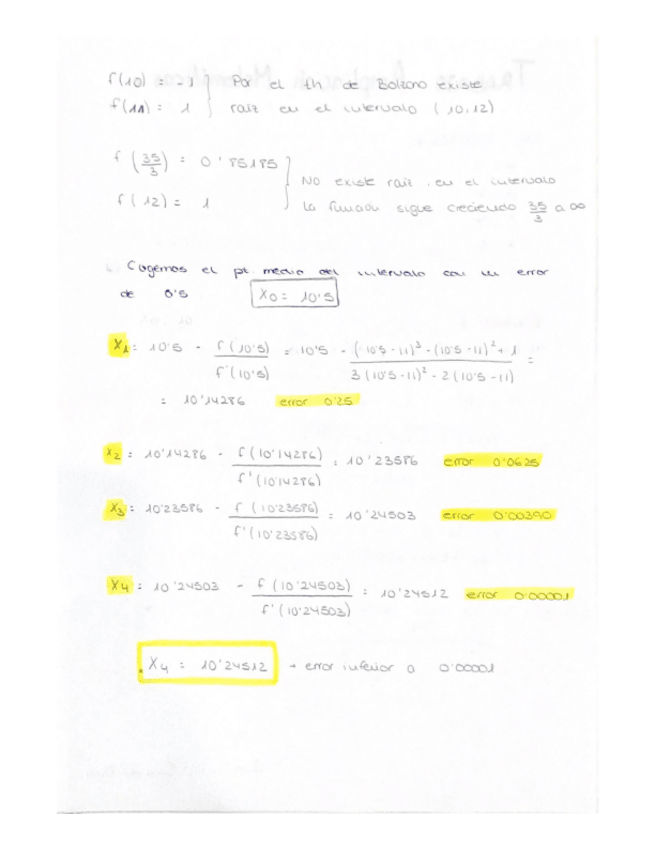 f(10) = -1 } Por el th de Bolzano existe
f(11) = 1 } raíz en el intervalo (10,12)
f(35/3) = 0'85185 } No existe raíz en el intervalo
f(12) = 1 } la función sigue creciendo 35/3 a ∞
Cogemos el pt. medio del intervalo con un error
de 0'5 X0 = 10'5
X1 = 10'5 - f(10'5)/f'(10'5) = 10'5 - ((10'5-11)³-(10'5-11)²+1)/(3(10'5-11)²-2(10'5-11)) =
= 10'14286 error 0'25
X2 = 10'14286 - f(10'14286)/f'(10'14286) = 10'23586 error 0'0625
X3 = 10'23586 - f(10'23586)/f'(10'23586) = 10'24503 error 0'00390
X4 = 10'24503 - f(10'24503)/f'(10'24503) = 10'24512 error 0'00001
X4 = 10'24512 → error inferior a 0'00001